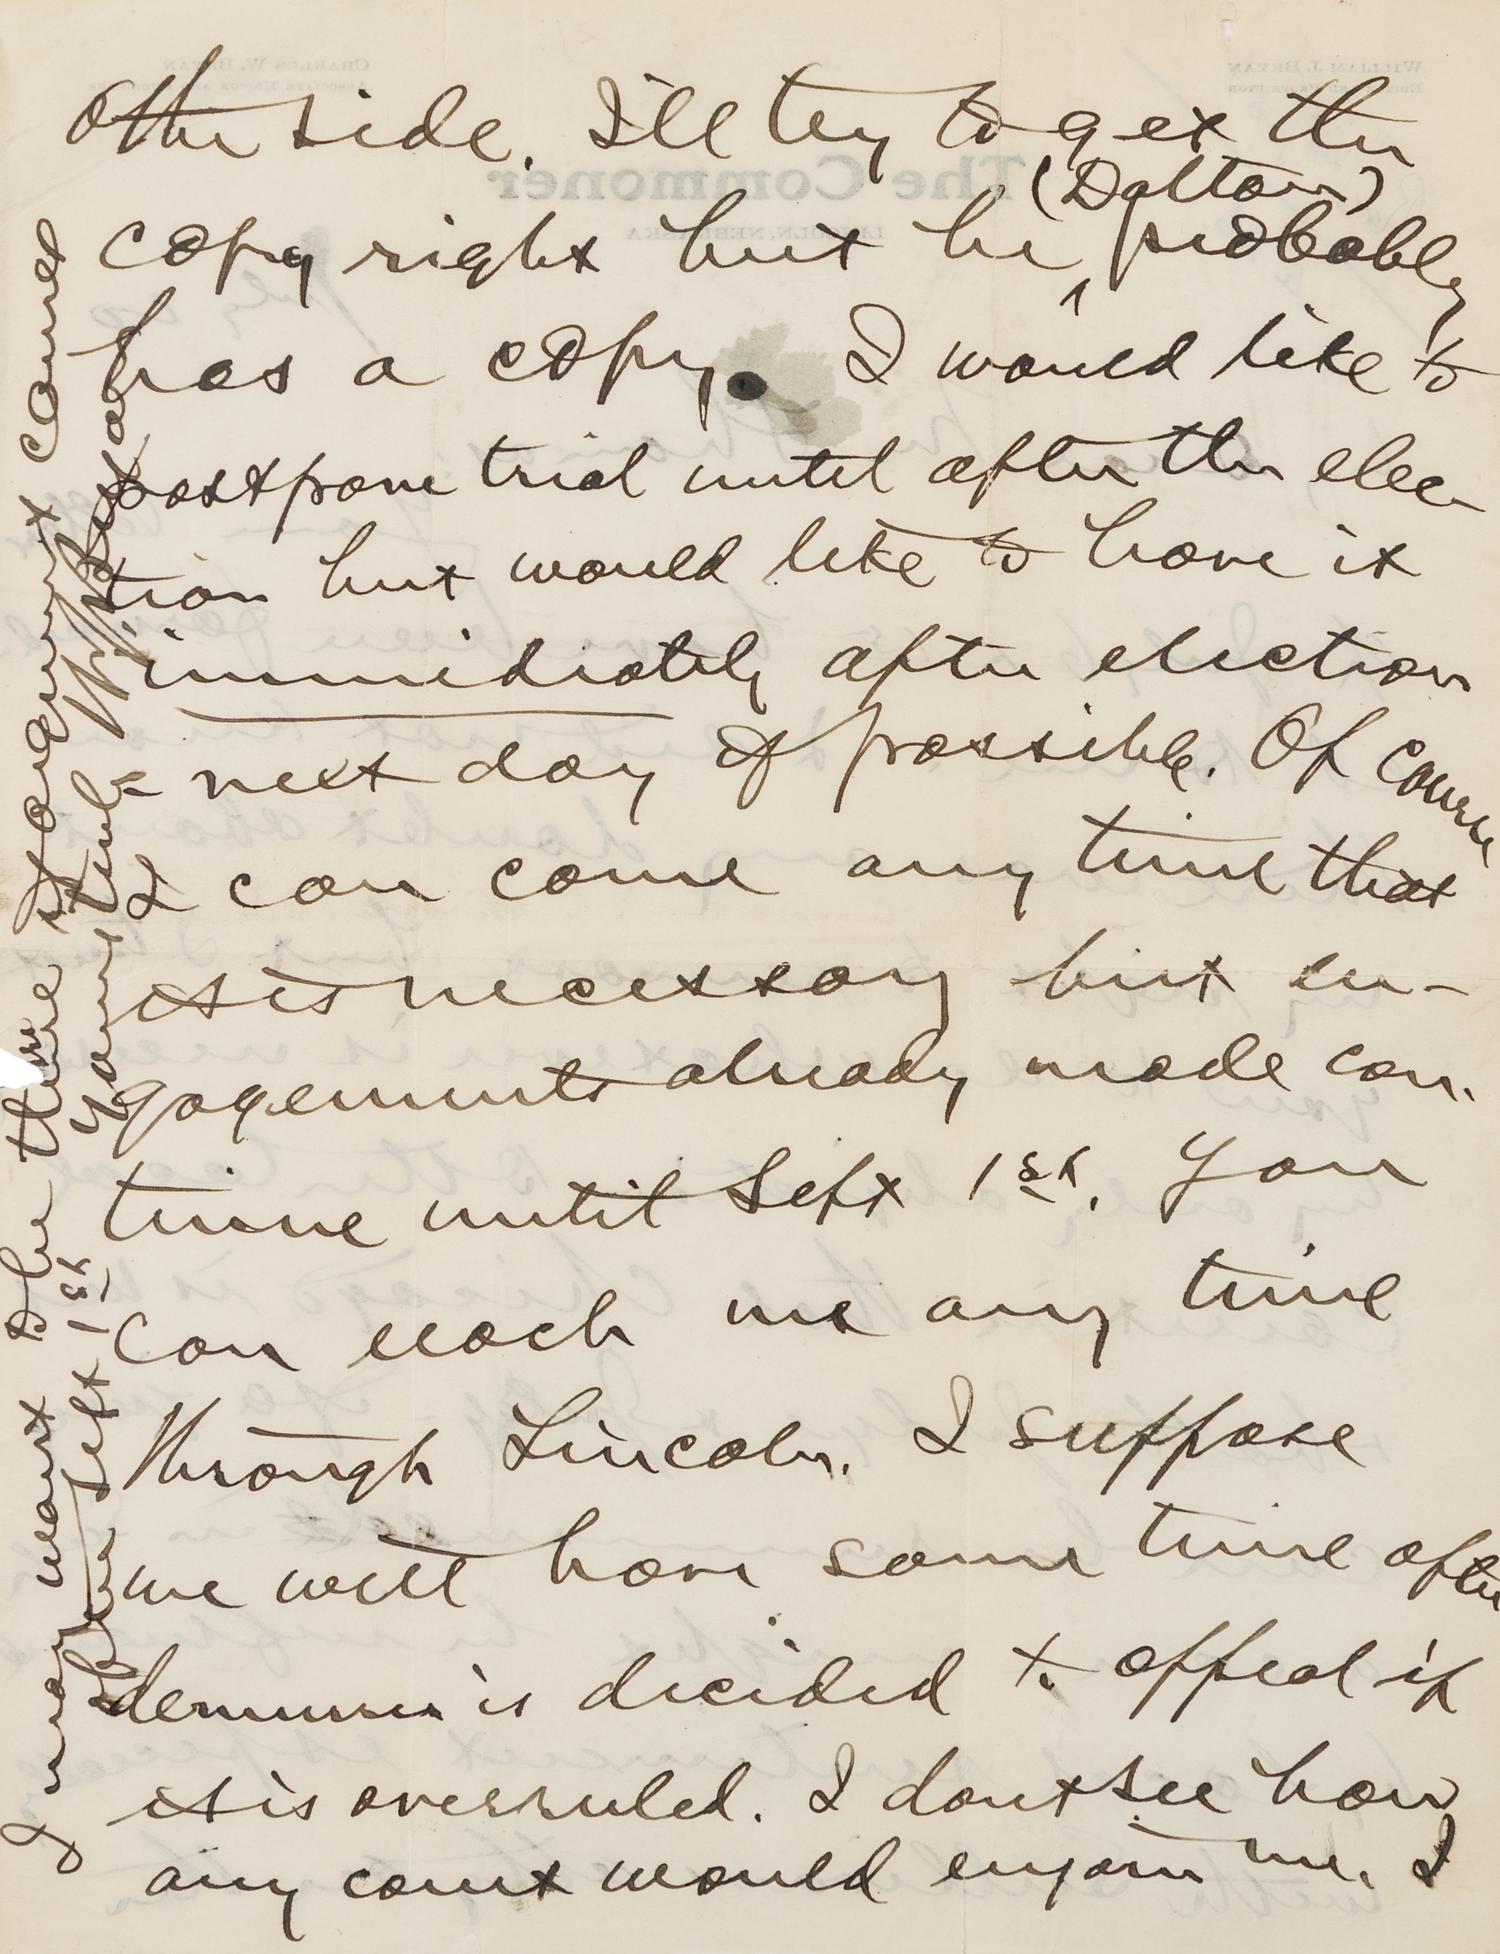 other side. I'll try to get the
copy right but he (Dalton) probably
has a copy. I would like to
postpone trial until after the elec-
tion but would like to have it
immediately after election
- next day if possible. Of course
I can come any time that
it is necessary but en-
gagements already made con-
tinue until Sept 1st. You
can reach me any time
through Lincoln. I suppose
we will have some time after
demurrer is decided to appeal if
it is overruled. I dont see how
any court would enjoin me. I
want the time
argument comes
before Sept 1st
Yours truly
W. J. Bryan
The Commoner
WILLIAM J. BRYAN
CHARLES W. BRYAN
LINCOLN, NEBRASKA